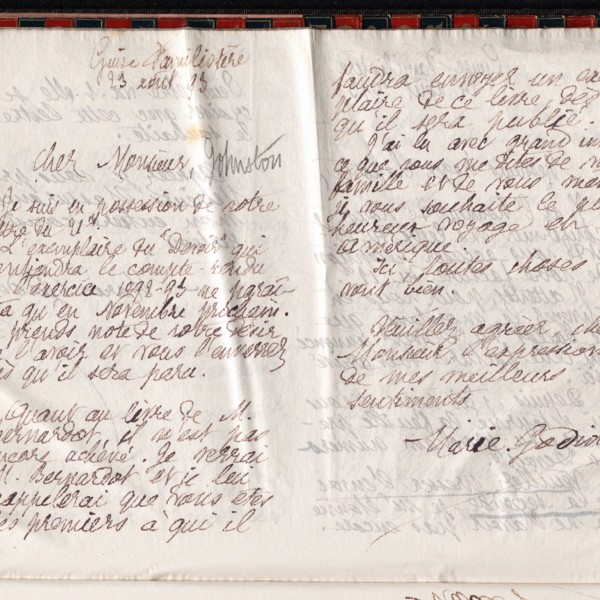 Guise Familistère
23 août 93
Cher Monsieur, Johnston
Je suis en possession de votre
lettre du 21 ct.
L'exemplaire du "Devoir" qui
le compte-rendu
l'exercice 1892-93 ne paraî-
tra qu'en Novembre prochain.
prends note de votre désir
l'avoir et vous l'enverrai
dès qu'il sera paru.
Quant au livre de M.
Bernardot, il n'est pas
encore achevé. Je verrai
M. Bernardot et je lui
rappelerai que vous êtes
des premiers à qui il
faudra envoyer un exem
plaire de ce livre, dès
qu'il sera publié.
J'ai lu avec grand
ce que vous me dites de
famille et de vous
je vous souhaite le plus
heureux voyage en
Amérique.
Ici toutes choses
vont bien.
Veuillez agréer, cher
Monsieur l'expression
de mes meilleurs
sentiments
Marie Godin